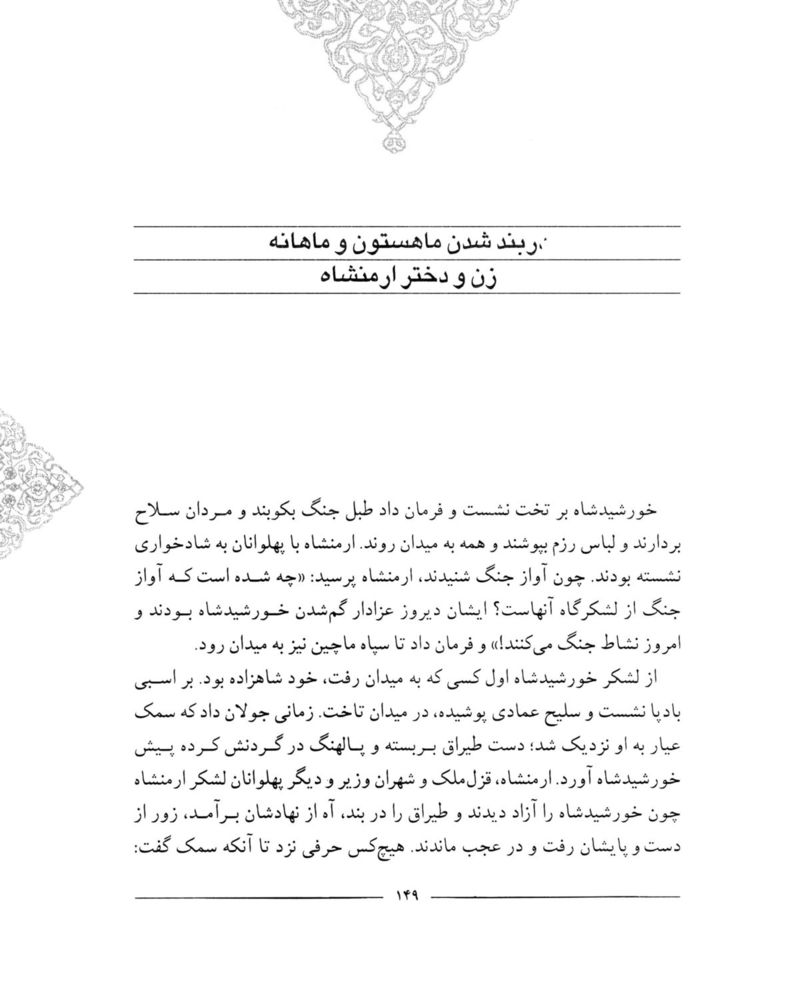 دربند شدن ماهستون و ماهانه
زن و دختر ارمنشاه
خورشیدشاه بر تخت نشست و فرمان داد طبل جنگ بکوبند و مردان سلاح
بردارند و لباس رزم بپوشند و همه به میدان روند. ارمنشاه با پهلوانان به شادخواری
نشسته بودند. چون آواز جنگ شنیدند، ارمنشاه پرسید: «چه شده است که آواز
جنگ از لشکرگاه آنهاست؟ ایشان دیروز عزادار گم‌شدن خورشیدشاه بودند و
امروز نشاط جنگ می‌کنند!» و فرمان داد تا سپاه ماچین نیز به میدان رود.
از لشکر خورشیدشاه اول کسی که به میدان رفت، خود شاهزاده بود. بر اسبی
بادپا نشست و سلیح عمادی پوشیده، در میدان تاخت. زمانی جولان داد که سمک
عیار به او نزدیک شد؛ دست طیراق بربسته و پالهنگ در گردنش کرده پیش
خورشیدشاه آورد. ارمنشاه، قزل‌ملک و شهران وزیر و دیگر پهلوانان لشکر ارمنشاه
چون خورشیدشاه را آزاد دیدند و طیراق را در بند، آه از نهادشان برآمد، زور از
دست و پایشان رفت و در عجب ماندند. هیچ‌کس حرفی نزد تا آنکه سمک گفت:
۱۴۹